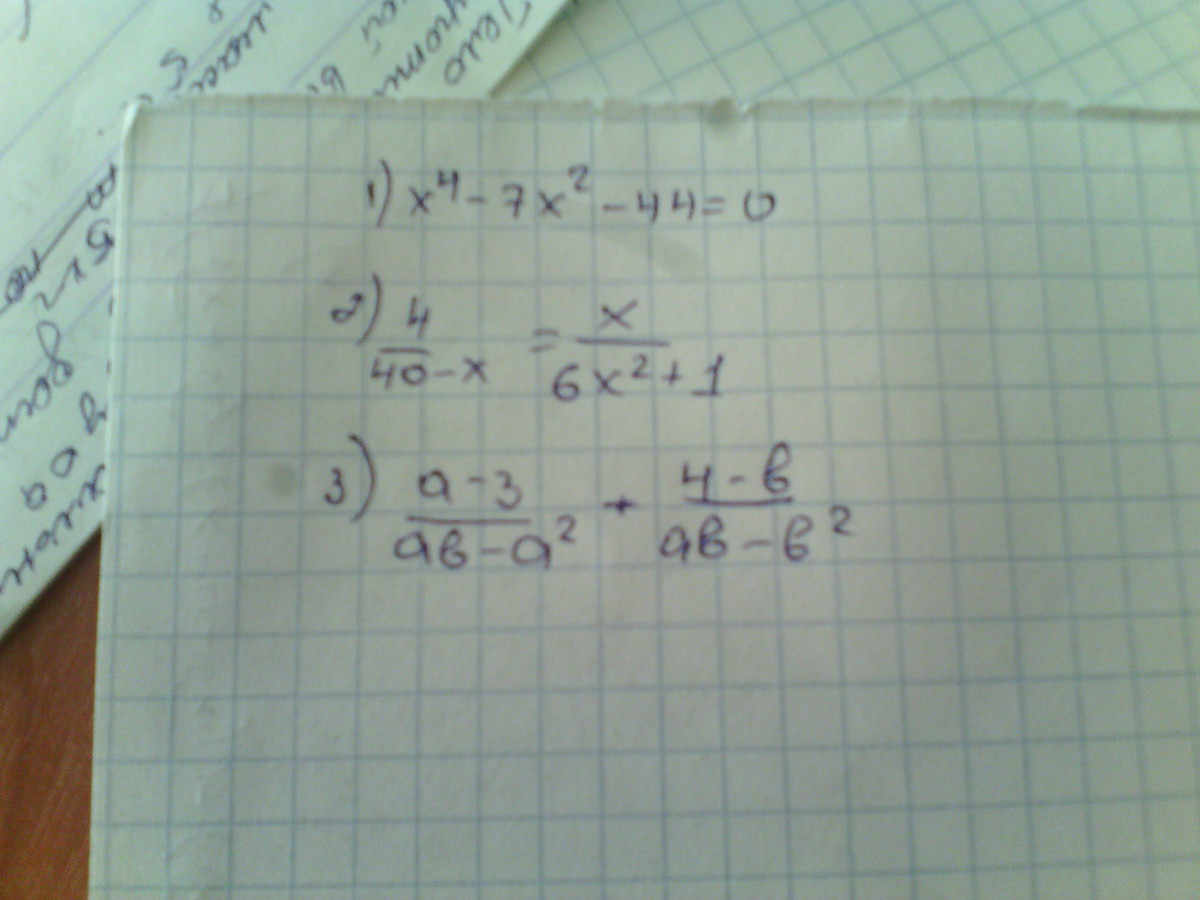 1) x⁴ - 7x² - 44 = 0
2) 4/(40 - x) = x/(6x² + 1)
3) (a - 3)/(ab - a²) + (4 - b)/(ab - b²)